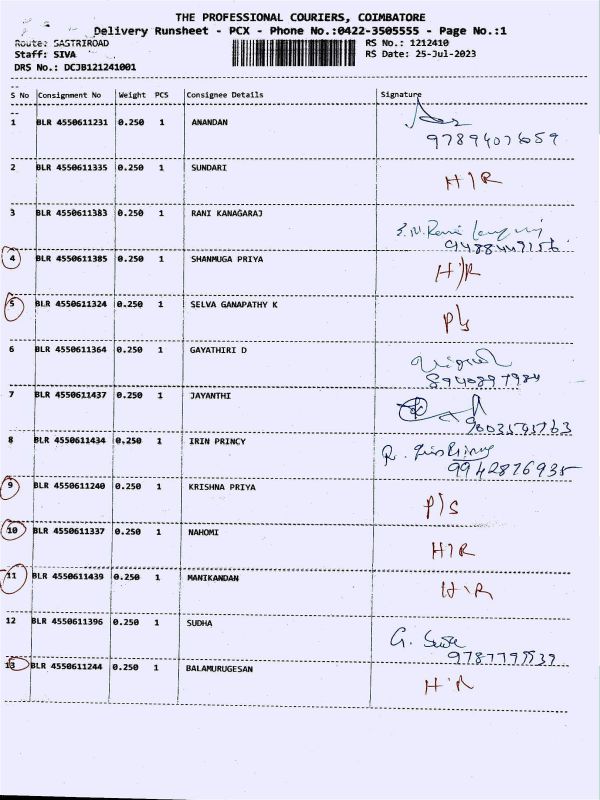 THE PROFESSIONAL COURIERS, COIMBATORE
Delivery Runsheet - PCX - Phone No.:0422-3505555 - Page No.:1
Route: SASTRIROAD RS No.: 1212410
Staff: SIVA RS Date: 25-Jul-2023
DRS No.: DCJB121241001
S No Consignment No Weight PCS Consignee Details Signature
1 BLR 4550611231 0.250 1 ANANDAN
2 BLR 4550611335 0.250 1 SUNDARI H/R
3 BLR 4550611383 0.250 1 RANI KANAGARAJ
9488449156
4 BLR 4550611385 0.250 1 SHANMUGA PRIYA H/R
5 BLR 4550611324 0.250 1 SELVA GANAPATHY K P/s
6 BLR 4550611364 0.250 1 GAYATHIRI D
8940897984
7 BLR 4550611437 0.250 1 JAYANTHI
8 BLR 4550611434 0.250 1 IRIN PRINCY
9942876935
9 BLR 4550611240 0.250 1 KRISHNA PRIYA P/s
10 BLR 4550611337 0.250 1 NAHOMI H/R
11 BLR 4550611439 0.250 1 MANIKANDAN H/R
12 BLR 4550611396 0.250 1 SUDHA
13 BLR 4550611244 0.250 1 BALAMURUGESAN H/R